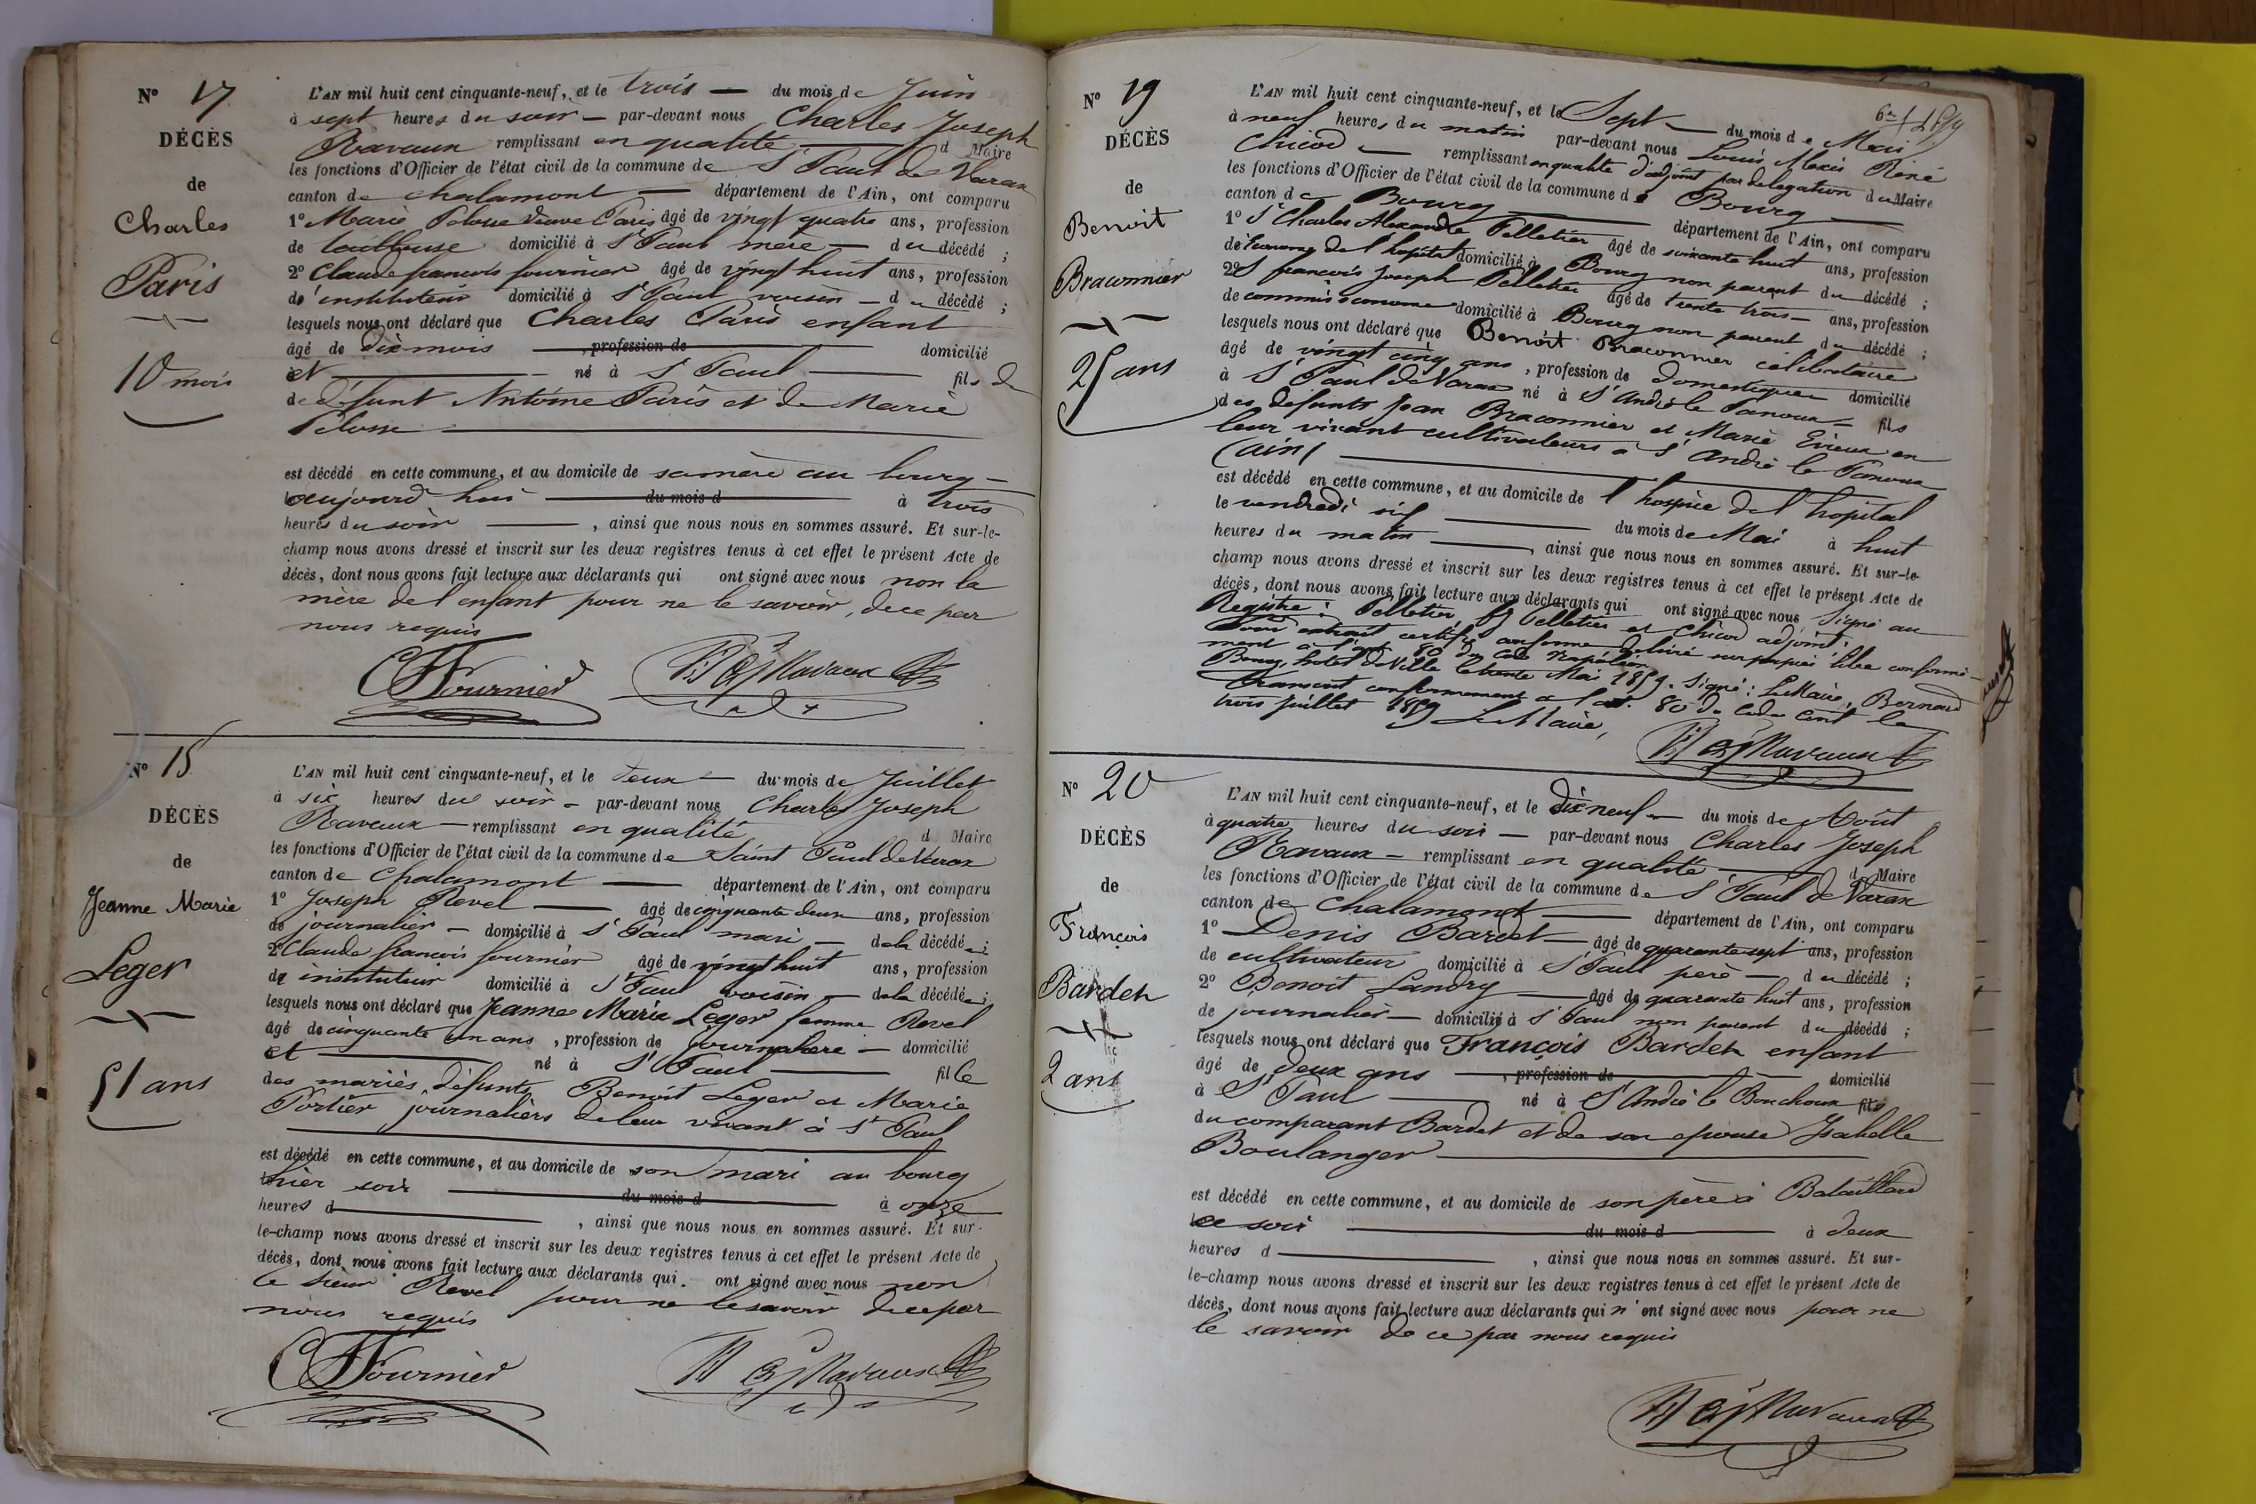 N° 17
DÉCÈS
de
Charles
Paris
10 mois
L'AN mil huit cent cinquante-neuf, et le trois du mois de Juin
à sept heures du soir par-devant nous Charles Joseph
Ravaux remplissant en qualité d Maire
les fonctions d'Officier de l'état civil de la commune de St Paul de Varax
canton de Chalamont département de l'Ain, ont comparu
1° Marie Pelosse veuve Paris âgé de vingt quatre ans, profession
de domicilié à St Paul mère du décédé ;
2° Claude françois fournier âgé de vingt huit ans, profession
de instituteur domicilié à St Paul voisin du décédé ;
lesquels nous ont déclaré que Charles Paris enfant
âgé de dix mois , profession de domicilié
et né à St Paul fils de
de défunt Antoine Paris et de Marie
Pelosse
est décédé en cette commune, et au domicile de sa mère au bourg
aujourd'hui du mois d à trois
heures du soir , ainsi que nous nous en sommes assuré. Et sur-le-
champ nous avons dressé et inscrit sur les deux registres tenus à cet effet le présent Acte de
décès, dont nous avons fait lecture aux déclarants qui ont signé avec nous non la
mère de l'enfant pour ne le savoir, de ce par
nous requis
Fournier Ravaux
N° 18
DÉCÈS
de
Jeanne Marie
Leger
51 ans
L'AN mil huit cent cinquante-neuf, et le deux du mois de Juillet
à six heures du soir par-devant nous Charles Joseph
Ravaux remplissant en qualité d Maire
les fonctions d'Officier de l'état civil de la commune de Saint Paul de Varax
canton de Chalamont département de l'Ain, ont comparu
1° Joseph Revel âgé de cinquante deux ans, profession
de journalier domicilié à St Paul mari de la décédée ;
2° Claude françois fournier âgé de vingt huit ans, profession
de instituteur domicilié à St Paul voisin de la décédée ;
lesquels nous ont déclaré que Jeanne Marie Leger femme Revel
âgé de cinquante un ans , profession de journalière domicilié
et né à St Paul fille
des mariés défunts Benoit Leger et Marie
Portier journaliers de leur vivant à St Paul
est décédé en cette commune, et au domicile de son mari au bourg
hier soir du mois d à onze
heures d , ainsi que nous nous en sommes assuré. Et sur-
le-champ nous avons dressé et inscrit sur les deux registres tenus à cet effet le présent Acte de
décès, dont nous avons fait lecture aux déclarants qui ont signé avec nous non
le sieur Revel pour ne le savoir de ce par
nous requis
Fournier Ravaux
N° 19
DÉCÈS
de
Benoit
Braconnier
25 ans
L'AN mil huit cent cinquante-neuf, et le Sept du mois de Mai
à neuf heures du matin par-devant nous Louis Alexis René
Chicod remplissant en qualité d'adjoint par délégation du Maire
les fonctions d'Officier de l'état civil de la commune de Bourg
canton de Bourg département de l'Ain, ont comparu
1° Sr Charles Alexandre Pelletier âgé de soixante huit ans, profession
de Econome de l'hopital domicilié à Bourg non parent du décédé ;
2° S françois Joseph Pelletier âgé de trente trois ans, profession
de commis économe domicilié à Bourg non parent du décédé ;
lesquels nous ont déclaré que Benoit Braconnier célibataire
âgé de vingt cinq ans , profession de domestique domicilié
à St Paul de Varax né à St André le Panoux fils
des défunts Jean Braconnier et Marie Evieux en
leur vivant cultivateurs à St André le Panoux
(ain)
est décédé en cette commune, et au domicile de l'hospice de l'hopital
le vendredi six du mois de Mai à huit
heures du matin , ainsi que nous nous en sommes assuré. Et sur-le-
champ nous avons dressé et inscrit sur les deux registres tenus à cet effet le présent Acte de
décès, dont nous avons fait lecture aux déclarants qui ont signé avec nous Signé au
Registre : Pelletier, Pelletier et Chicod adjoint.
Pour extrait certifié conforme délivré sur papier libre conformé-
ment à l'art 80 du Code Napoléon
Bourg, hotel de Ville le trente Mai 1859. Signé : Le Maire, Bernard
Transcrit conformément à l'art. 80 du Code Civil le
trois juillet 1859 Le Maire,
Ravaux
N° 20
DÉCÈS
de
François
Bardet
2 ans
L'AN mil huit cent cinquante-neuf, et le dix neuf du mois de Août
à quatre heures du soir par-devant nous Charles Joseph
Ravaux remplissant en qualité d Maire
les fonctions d'Officier de l'état civil de la commune de St Paul de Varax
canton de Chalamont département de l'Ain, ont comparu
1° Denis Bardet âgé de quarante sept ans, profession
de cultivateur domicilié à St Paul père du décédé ;
2° Benoit Landry âgé de quarante huit ans, profession
de journalier domicilié à St Paul non parent du décédé ;
lesquels nous ont déclaré que François Bardet enfant
âgé de deux ans , profession de domicilié
à St Paul né à St André le Bouchoux fils
du comparant Bardet et de son épouse Isabelle
Boulanger
est décédé en cette commune, et au domicile de son père à Bataillard
ce soir du mois d à deux
heures d , ainsi que nous nous en sommes assuré. Et sur-
le-champ nous avons dressé et inscrit sur les deux registres tenus à cet effet le présent Acte de
décès, dont nous avons fait lecture aux déclarants qui n'ont signé avec nous pour ne
le savoir de ce par nous requis
Ravaux